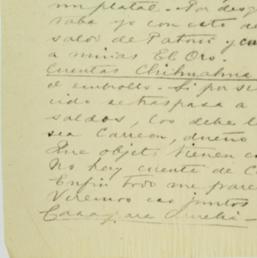 un platal. Por desg
raba yo con este de
saldo de Patoni y cu
a minas El Oro.
Cuentas Chihuahua
el embrollo. Si por se
cido se traspasa a
saldos, los debe l
sea Carreon, dueño
Que objeto tienen c
No hay cuenta de C
Enfin todo me parec
Veremos eso juntos